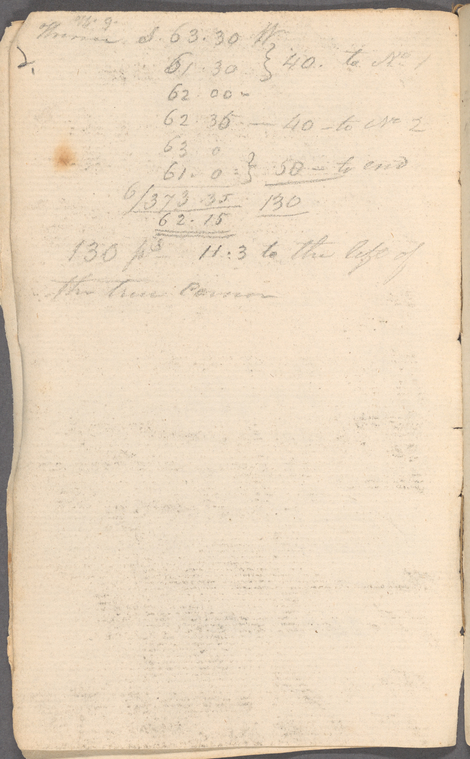 S. 63.30 W
61.30 } 40. to No 1
62 00 -
62 35 — 40 - to No 2
63 0
61. 0 - } 50 - to end
6/373.35 130
62.15
130 ps 11.3 to the left of
the true Corner